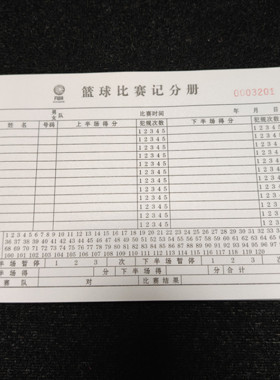 篮球比赛记分册
0003201
队 比赛时间 年 月 日
姓名 号码 上半场得分 犯规次数 下半场得分 犯规次数
1 2 3 4 5 1 2 3 4 5
1 2 3 4 5 1 2 3 4 5
1 2 3 4 5 1 2 3 4 5
1 2 3 4 5 1 2 3 4 5
1 2 3 4 5 1 2 3 4 5
1 2 3 4 5 1 2 3 4 5
1 2 3 4 5 1 2 3 4 5
1 2 3 4 5 1 2 3 4 5
1 2 3 4 5 1 2 3 4 5
1 2 3 4 5 1 2 3 4 5
1 2 3 4 5 6 7 8 9 10 11 12 13 14 15 16 17 18 19 20 21 22 23 24 25 26 27 28 29 30 31 32
36 37 38 39 40 41 42 43 44 45 46 47 48 49 50 51 52 53 54 55 56 57 58 59 60 61 62 63 64 65
68 69 70 71 72 73 74 75 76 77 78 79 80 81 82 83 84 85 86 87 88 89 90 91 92 93 94 95 96 97
100 101 102 103 104 105 106 107 108 109 110 111 112 113 114 115 116 117 118 119 120
半场暂停 1 2 3 次 下半场暂停 1 2 3
半场得 分 下半场得 分 合计
赛队 对 比赛结果